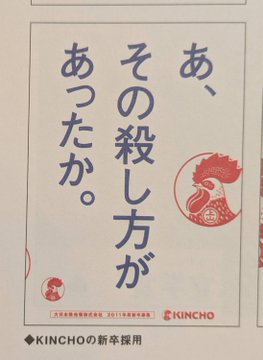 あ、
その殺し方が
あったか。
大日本除虫菊株式会社 2011年度新卒募集
KINCHO
◆KINCHOの新卒採用